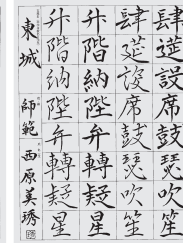 肆筵設席鼓瑟吹笙
肆筵設席鼓瑟吹笙
升階納陛弁轉疑星
升階納陛弁轉疑星
東城 師範 西原美琇